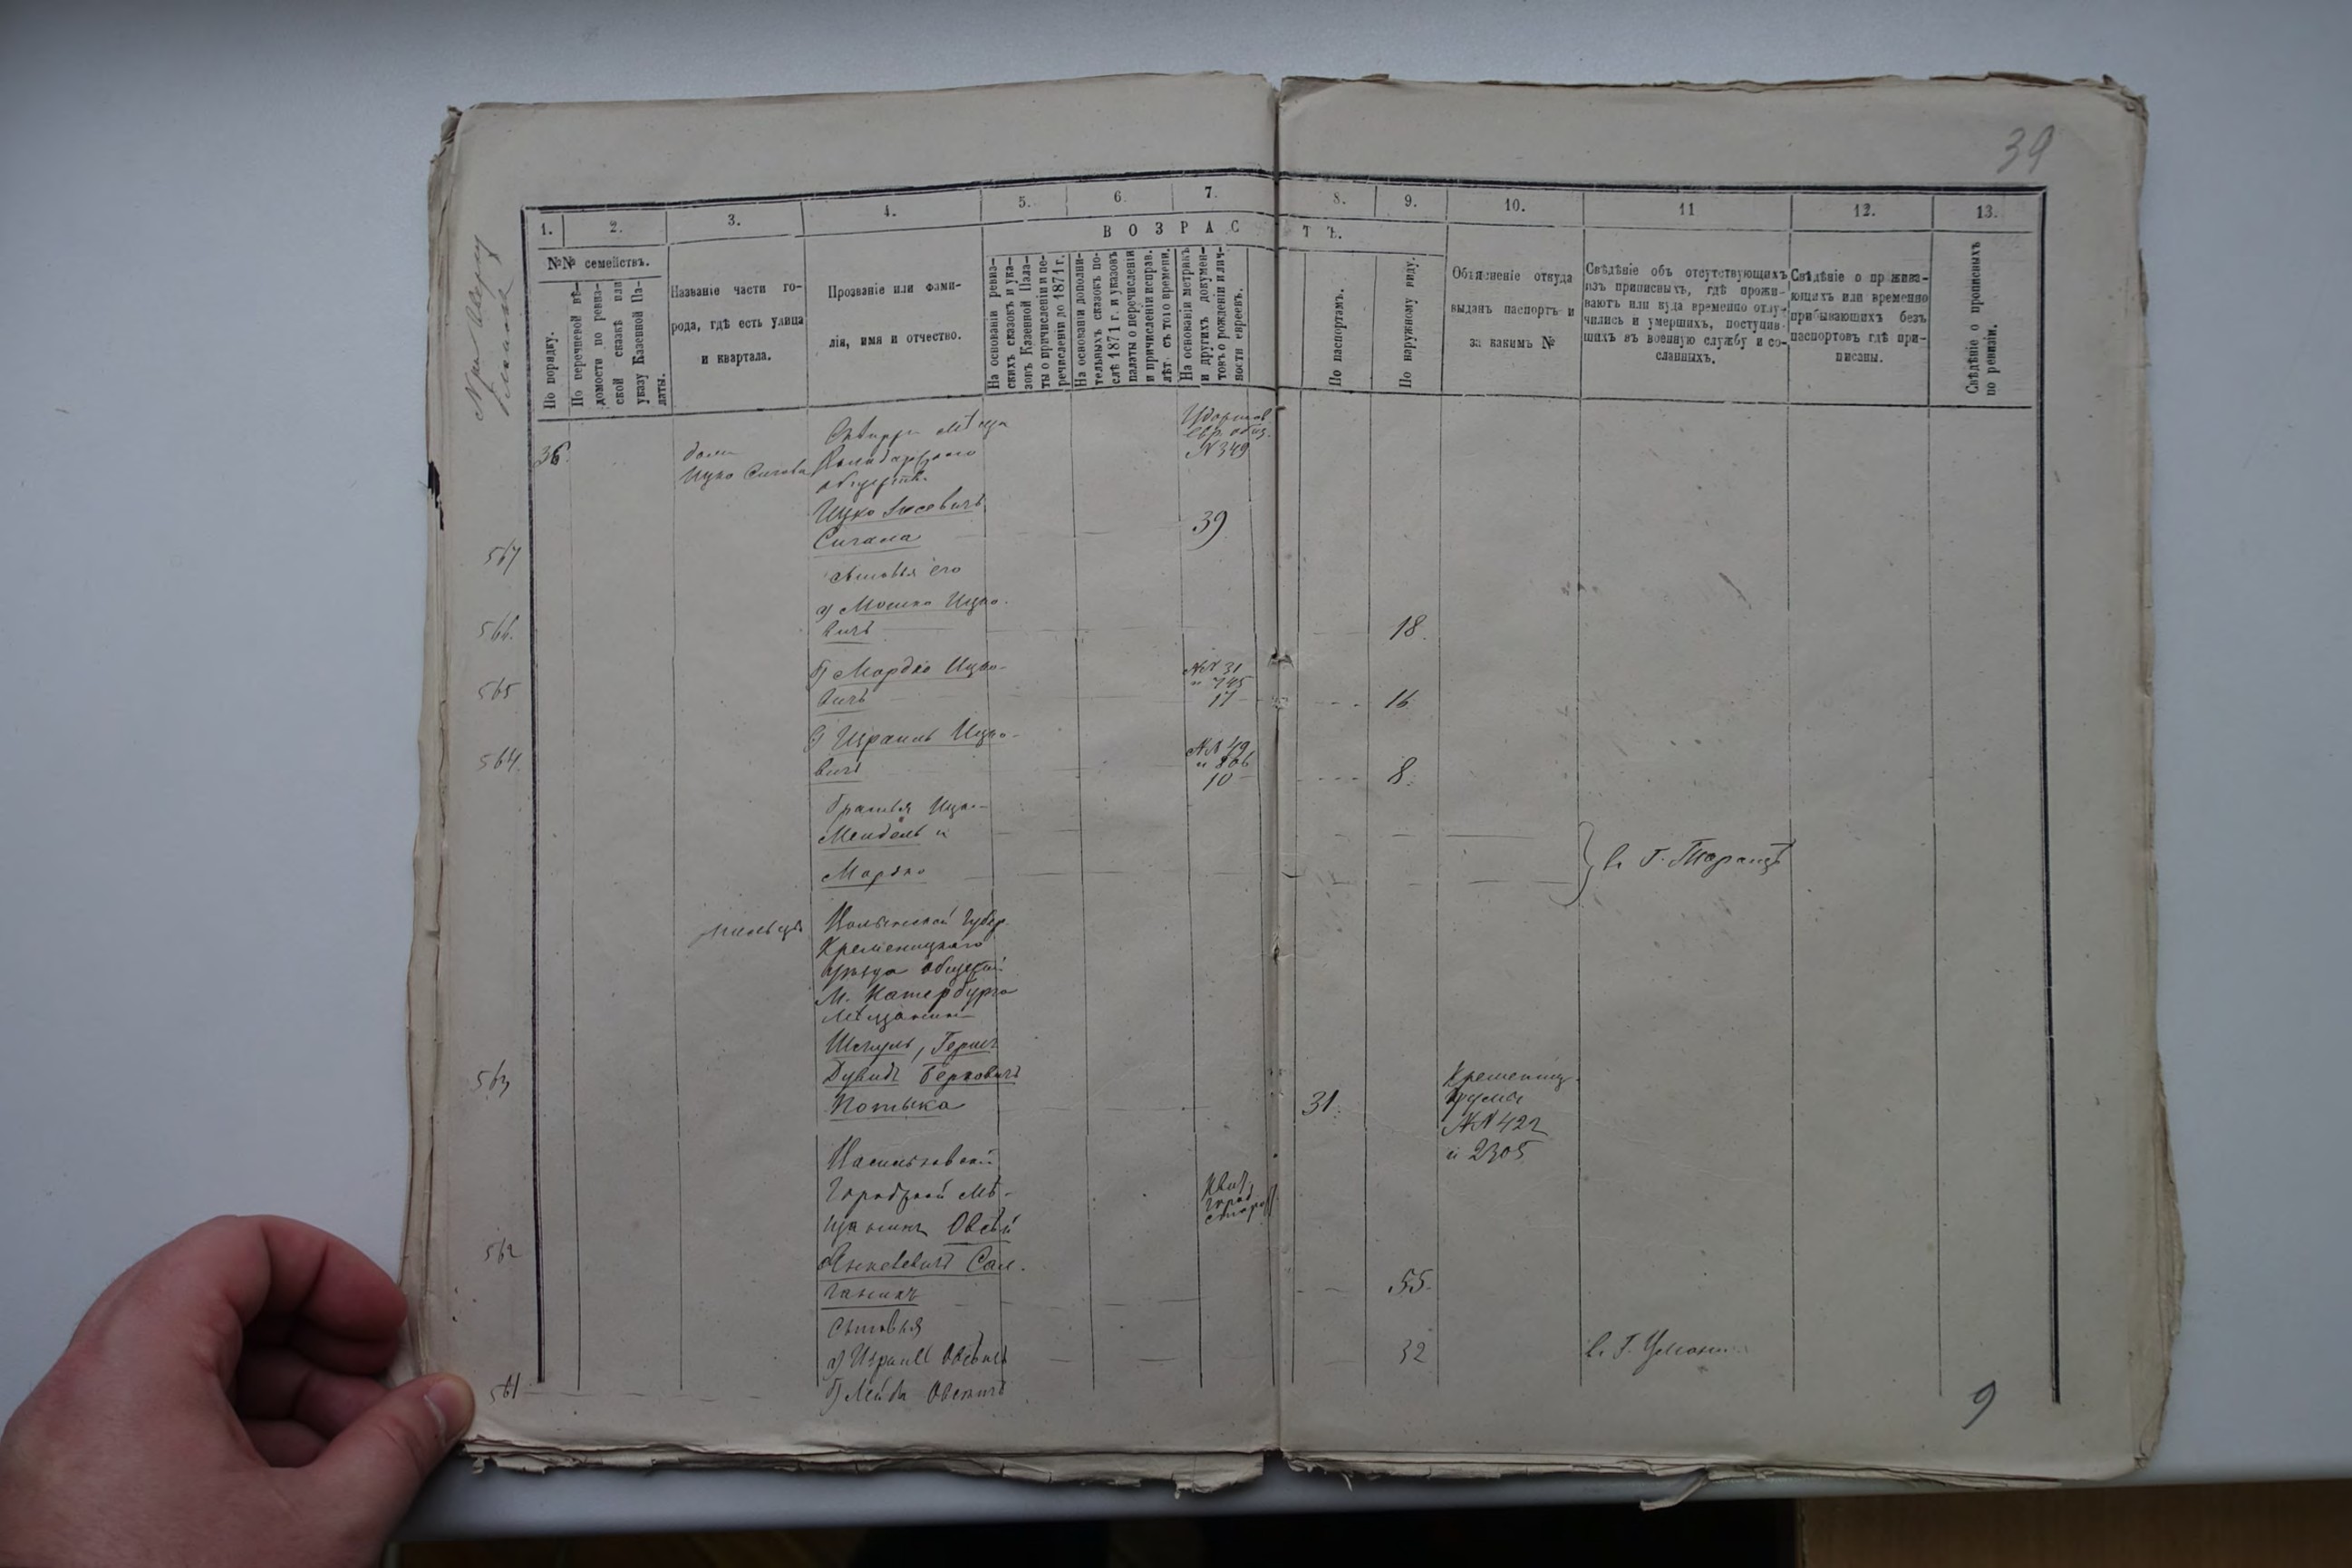 39
1.
2.
3.
4.
5.
6.
7.
8.
9.
10.
11
12.
13.
ВОЗРАСТЪ.
№№ семействъ.
По порядку.
По перечневой вѣ-
домости по ревиз-
ской сказкѣ или
указу Казенной Па-
латы.
Названіе части го-
рода, гдѣ есть улица
и квартала.
Прозваніе или фами-
лія, имя и отчество.
На основаніи ревиз-
скихъ сказокъ и ука-
зовъ Казенной Пала-
ты о причисленіи и пе-
речисленіи до 1871 г.
На основаніи дополни-
тельныхъ сказокъ по-
слѣ 1871 г. и указовъ
палаты о перечисленіи
и причисленіи исправ.
лѣт. съ того времени.
На основаніи метрикъ
и другихъ докумен-
товъ о рожденіи и лич-
ности евреевъ.
По паспортамъ.
По наружному виду.
Объясненіе откуда
выданъ паспортъ и
за какимъ №
Свѣдѣніе объ отсутствующихъ
изъ приписныхъ, гдѣ прожи-
ваютъ или куда временно отлу-
чились и умершихъ, поступив-
шихъ въ военную службу и со-
сланныхъ.
Свѣдѣніе о прожива-
ющихъ или временно
прибывающихъ безъ
паспортовъ гдѣ при-
писаны.
Свѣдѣніе о прописныхъ
по ревизіи.
36.
домъ
Ицко Сигала
общества
№349
Ицко Іосевичъ
39
Сигала
567
сыновья его
а) Мошко Ицко-
566.
вичъ
18.
б) Мордко Ицко-
№№ 31
и 745
565
вичъ
17
16
Израиль Ицко-
№№ 49
и 806
564.
вичъ
10
8.
братья Ицко-
Мендель и
в. Г. Тараще
Мордко
Волынской Губер.
Кременецкаго
уѣзда общества
М. Катербурга
Мѣщанинъ
Шмуль, Гершъ
563
Дувидъ Берковичъ
Кременец.
31.
№№ 422
и 2305
Васильковскій
Городской Мѣ-
щанинъ Овсѣй
562
Янкелевичъ Сал.
55.
ганикъ
Сыновья
а) Израиль Овсѣевъ
32
в. Г. Умани
561
б) Лейба Овсѣевъ
9